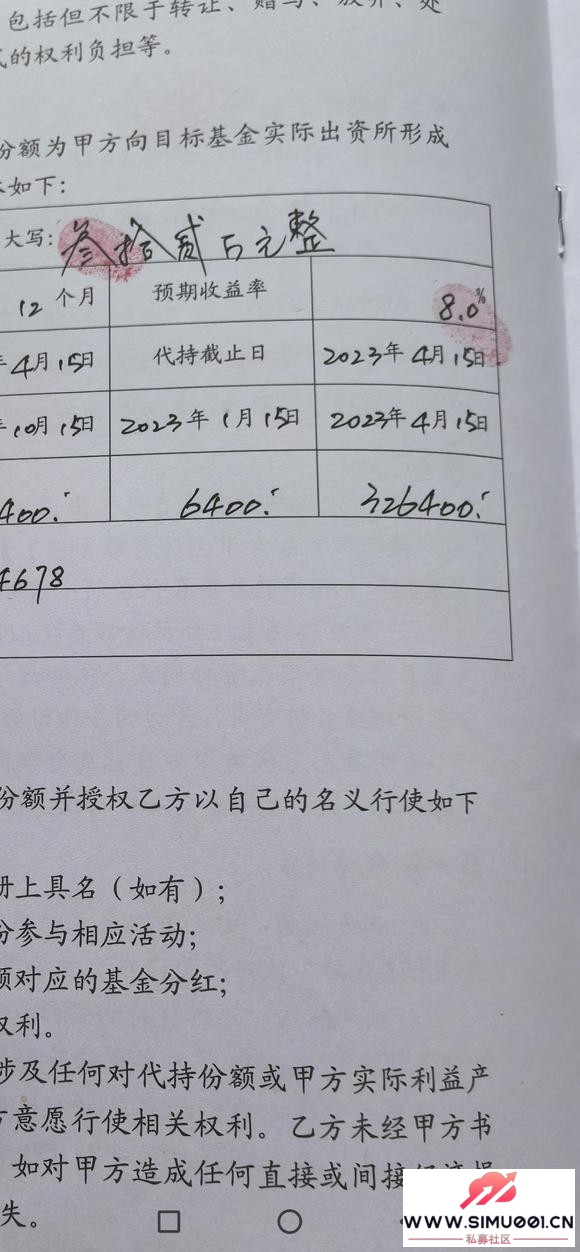 包括但不限于转让、赠与、放弃、处
式的权利负担等。
份额为甲方向目标基金实际出资所形成
体如下:
大写: 叁拾贰万元整
12 个月 预期收益率 8.0%
年4月15日 代持截止日 2023年4月15日
年10月15日 2023年1月15日 2023年4月15日
400. 6400. 326400.
4678
份额并授权乙方以自己的名义行使如下
册上具名（如有）;
分参与相应活动;
额对应的基金分红;
权利。
涉及任何对代持份额或甲方实际利益产
方意愿行使相关权利。乙方未经甲方书
如对甲方造成任何直接或间接经济损
失。
WWW.SIMU001.CN
私募社区